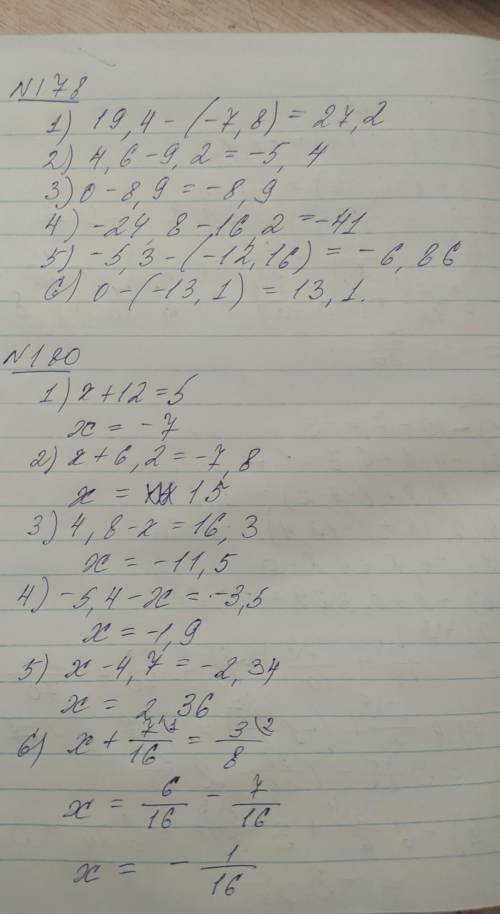 N178
1) 19,4-(-7,8)=27,2
2) 4,6-9,2=-5,4
3) 0-8,9=-8,9
4) -24,8-16,2=-41
5) -5,3-(-12,16)=-6,86
6) 0-(-13,1)=13,1.
N180
1) x+12=5
x=-7
2) x+6,2=-7,8
x= 15
3) 4,8-x=16,3
x=-11,5
4) -5,4-x=-3,5
x=-1,9
5) x-4,7=-2,34
x=2,36
6) x+7\1/16=3\2/8
x=6/16-7/16
x=-1/16